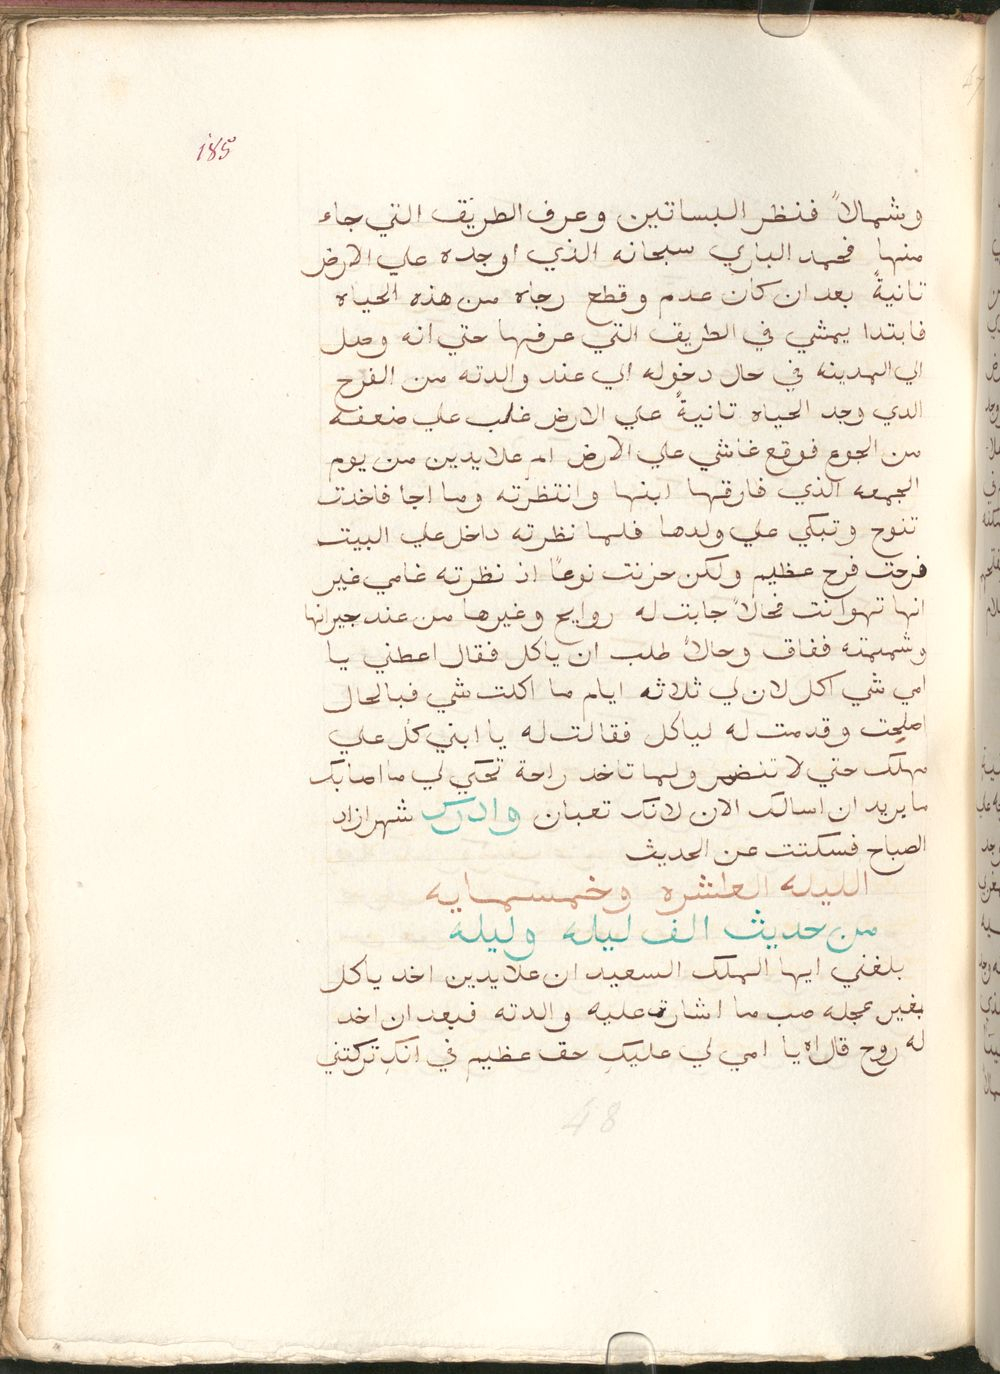 185
وشمالاً فنظر البساتين وعرف الطريق التي جاء
منها فحمد الباري سبحانه الذي اوجده علي الارض
تانيةً بعد ان كان عدم وقطع رجاه من هذه الحياه
فابتدا يمشي في الطريق التي عرفها حتي انه وصل
الي المدينه في حال دخوله الي عند والدته من الفرح
الدي وجد الحياه تانيةً علي الارض غلب علي ضعفه
من الجوع فوقع غاشي علي الارض ام علايدين من يوم
الجمعه الذي فارقها ابنها وانتظرته وما اجا فاخدت
تنوح وتبكي علي ولدها فلما نظرته داخل علي البيت
فرحت فرح عظيم ولكن حزنت نوعاً اذ نظرته غامي غير
انها تهوانت فحالاً جابت له روايح وغيرها من عند جيرانها
وشممته ففاق وحالاً طلب ان ياكل فقال اعطني يا
امي شي اكل لان لي ثلاثه ايام ما اكلت شي فبالحال
اصلحت وقدمت له لياكل فقالت له يا ابني كل علي
مهلك حتي لا تنضر ولما تاخد راحة تحكي لي ما اصابك
ما بريد ان اسالك الان لانك تعبان وادرك شهرازاد
الصباح فسكتت عن الحديث
الليله العاشره وخمسمايه
من حديث الف ليله وليله
بلغني ايها الملك السعيد ان علايدين اخد ياكل
بغير عجله حب ما اشارت عليه والدته فبعد ان اخد
له روح قال اه يا امي لي عليكِ حق عظيم في انكِ تركتني
48